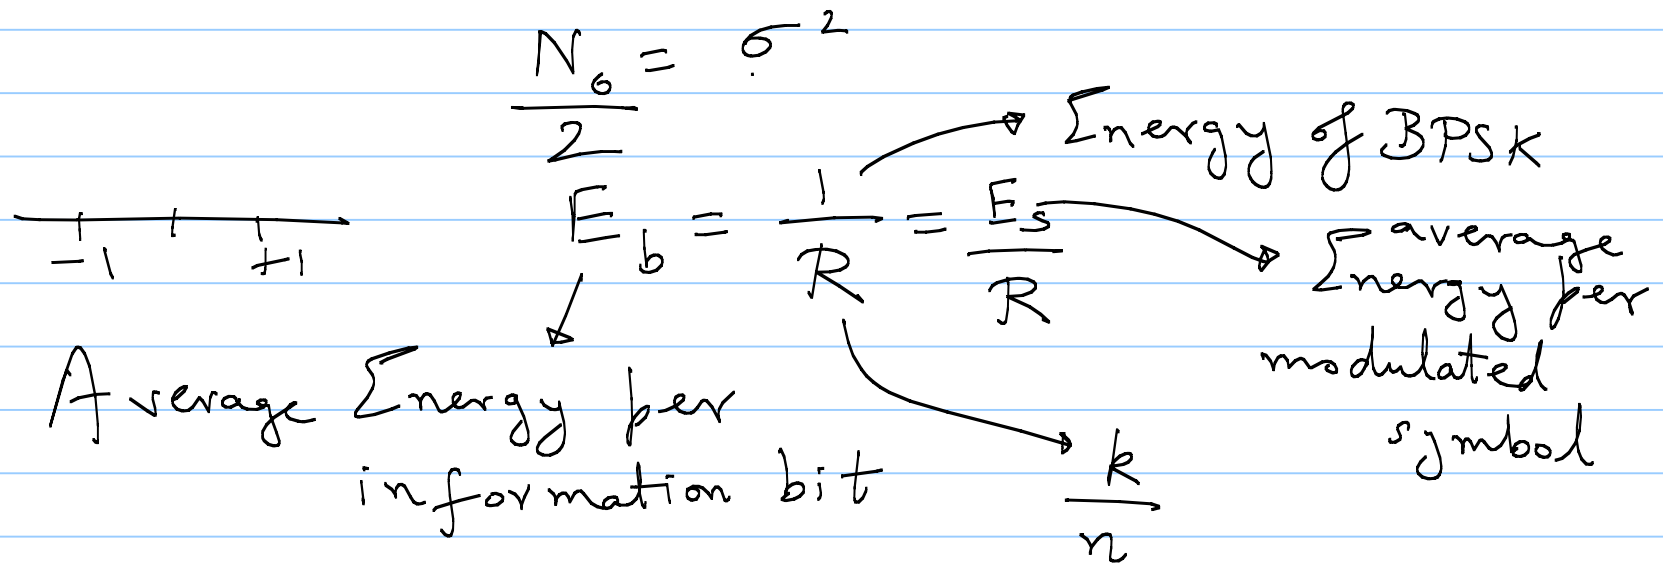 N₀/2 = σ²
Energy of BPSK
E_b = 1/R = E_s/R
-1 +1
average
Energy per
modulated
symbol
Average Energy per
information bit
k/n